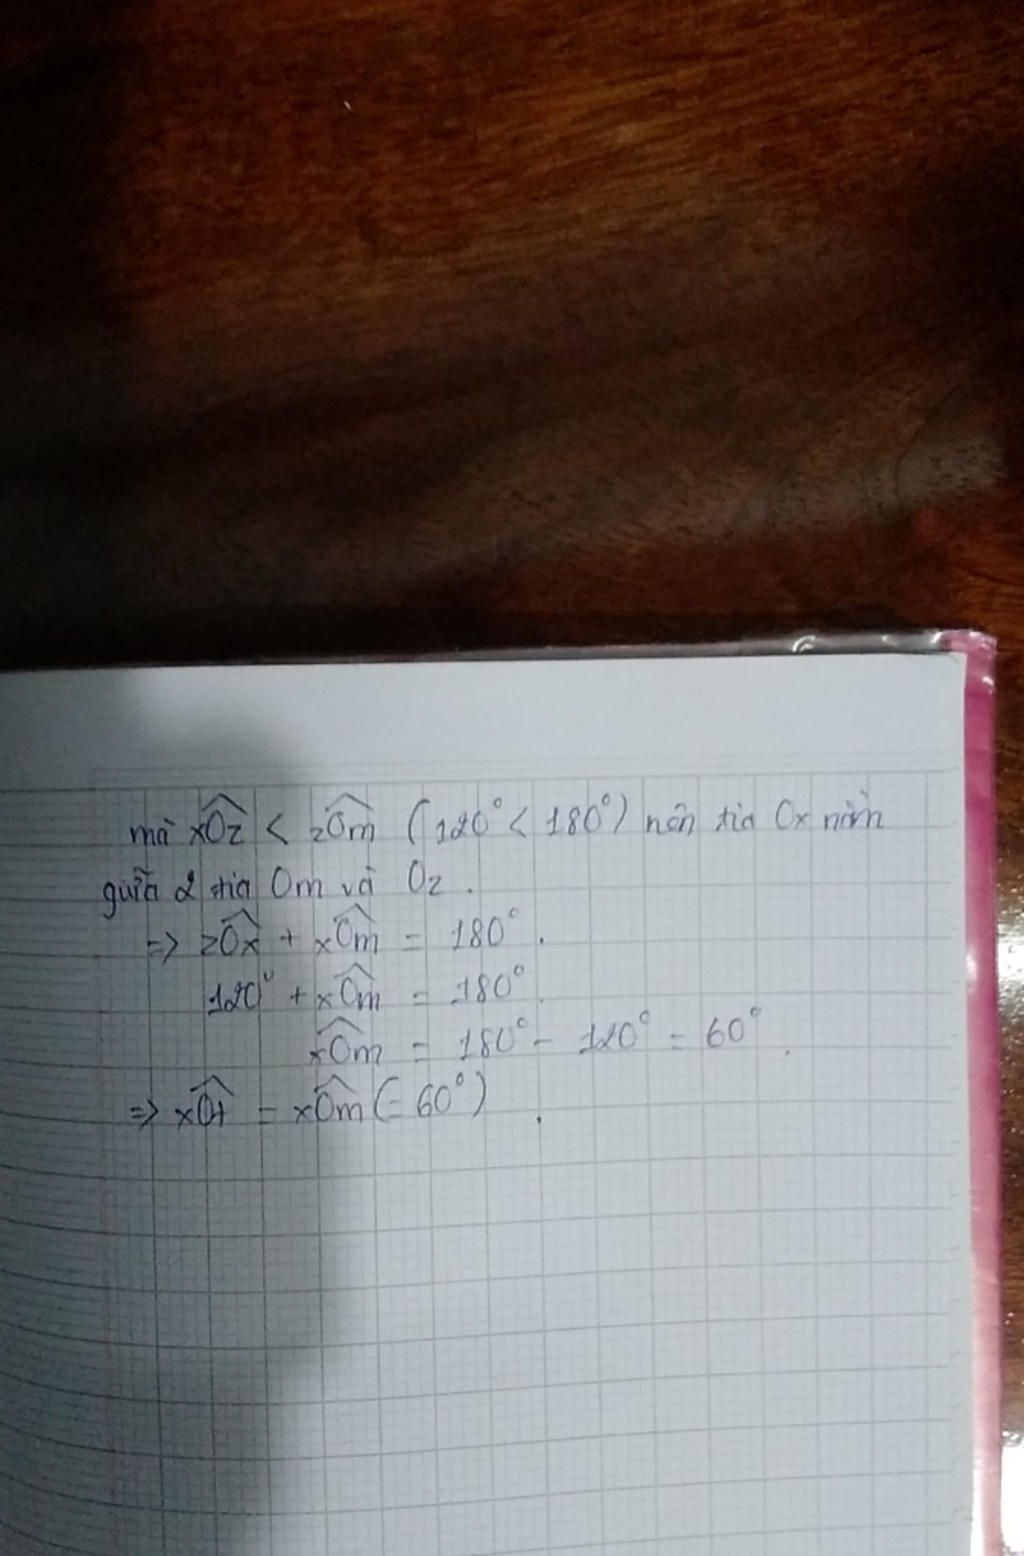 mà xÔz < zÔm (120° < 180°) nên tia Ox nằm
giữa 2 tia Om và Oz.
=> zÔx + xÔm = 180°.
120° + xÔm = 180°
xÔm = 180° - 120° = 60°.
=> xÔt = xÔm (= 60°).